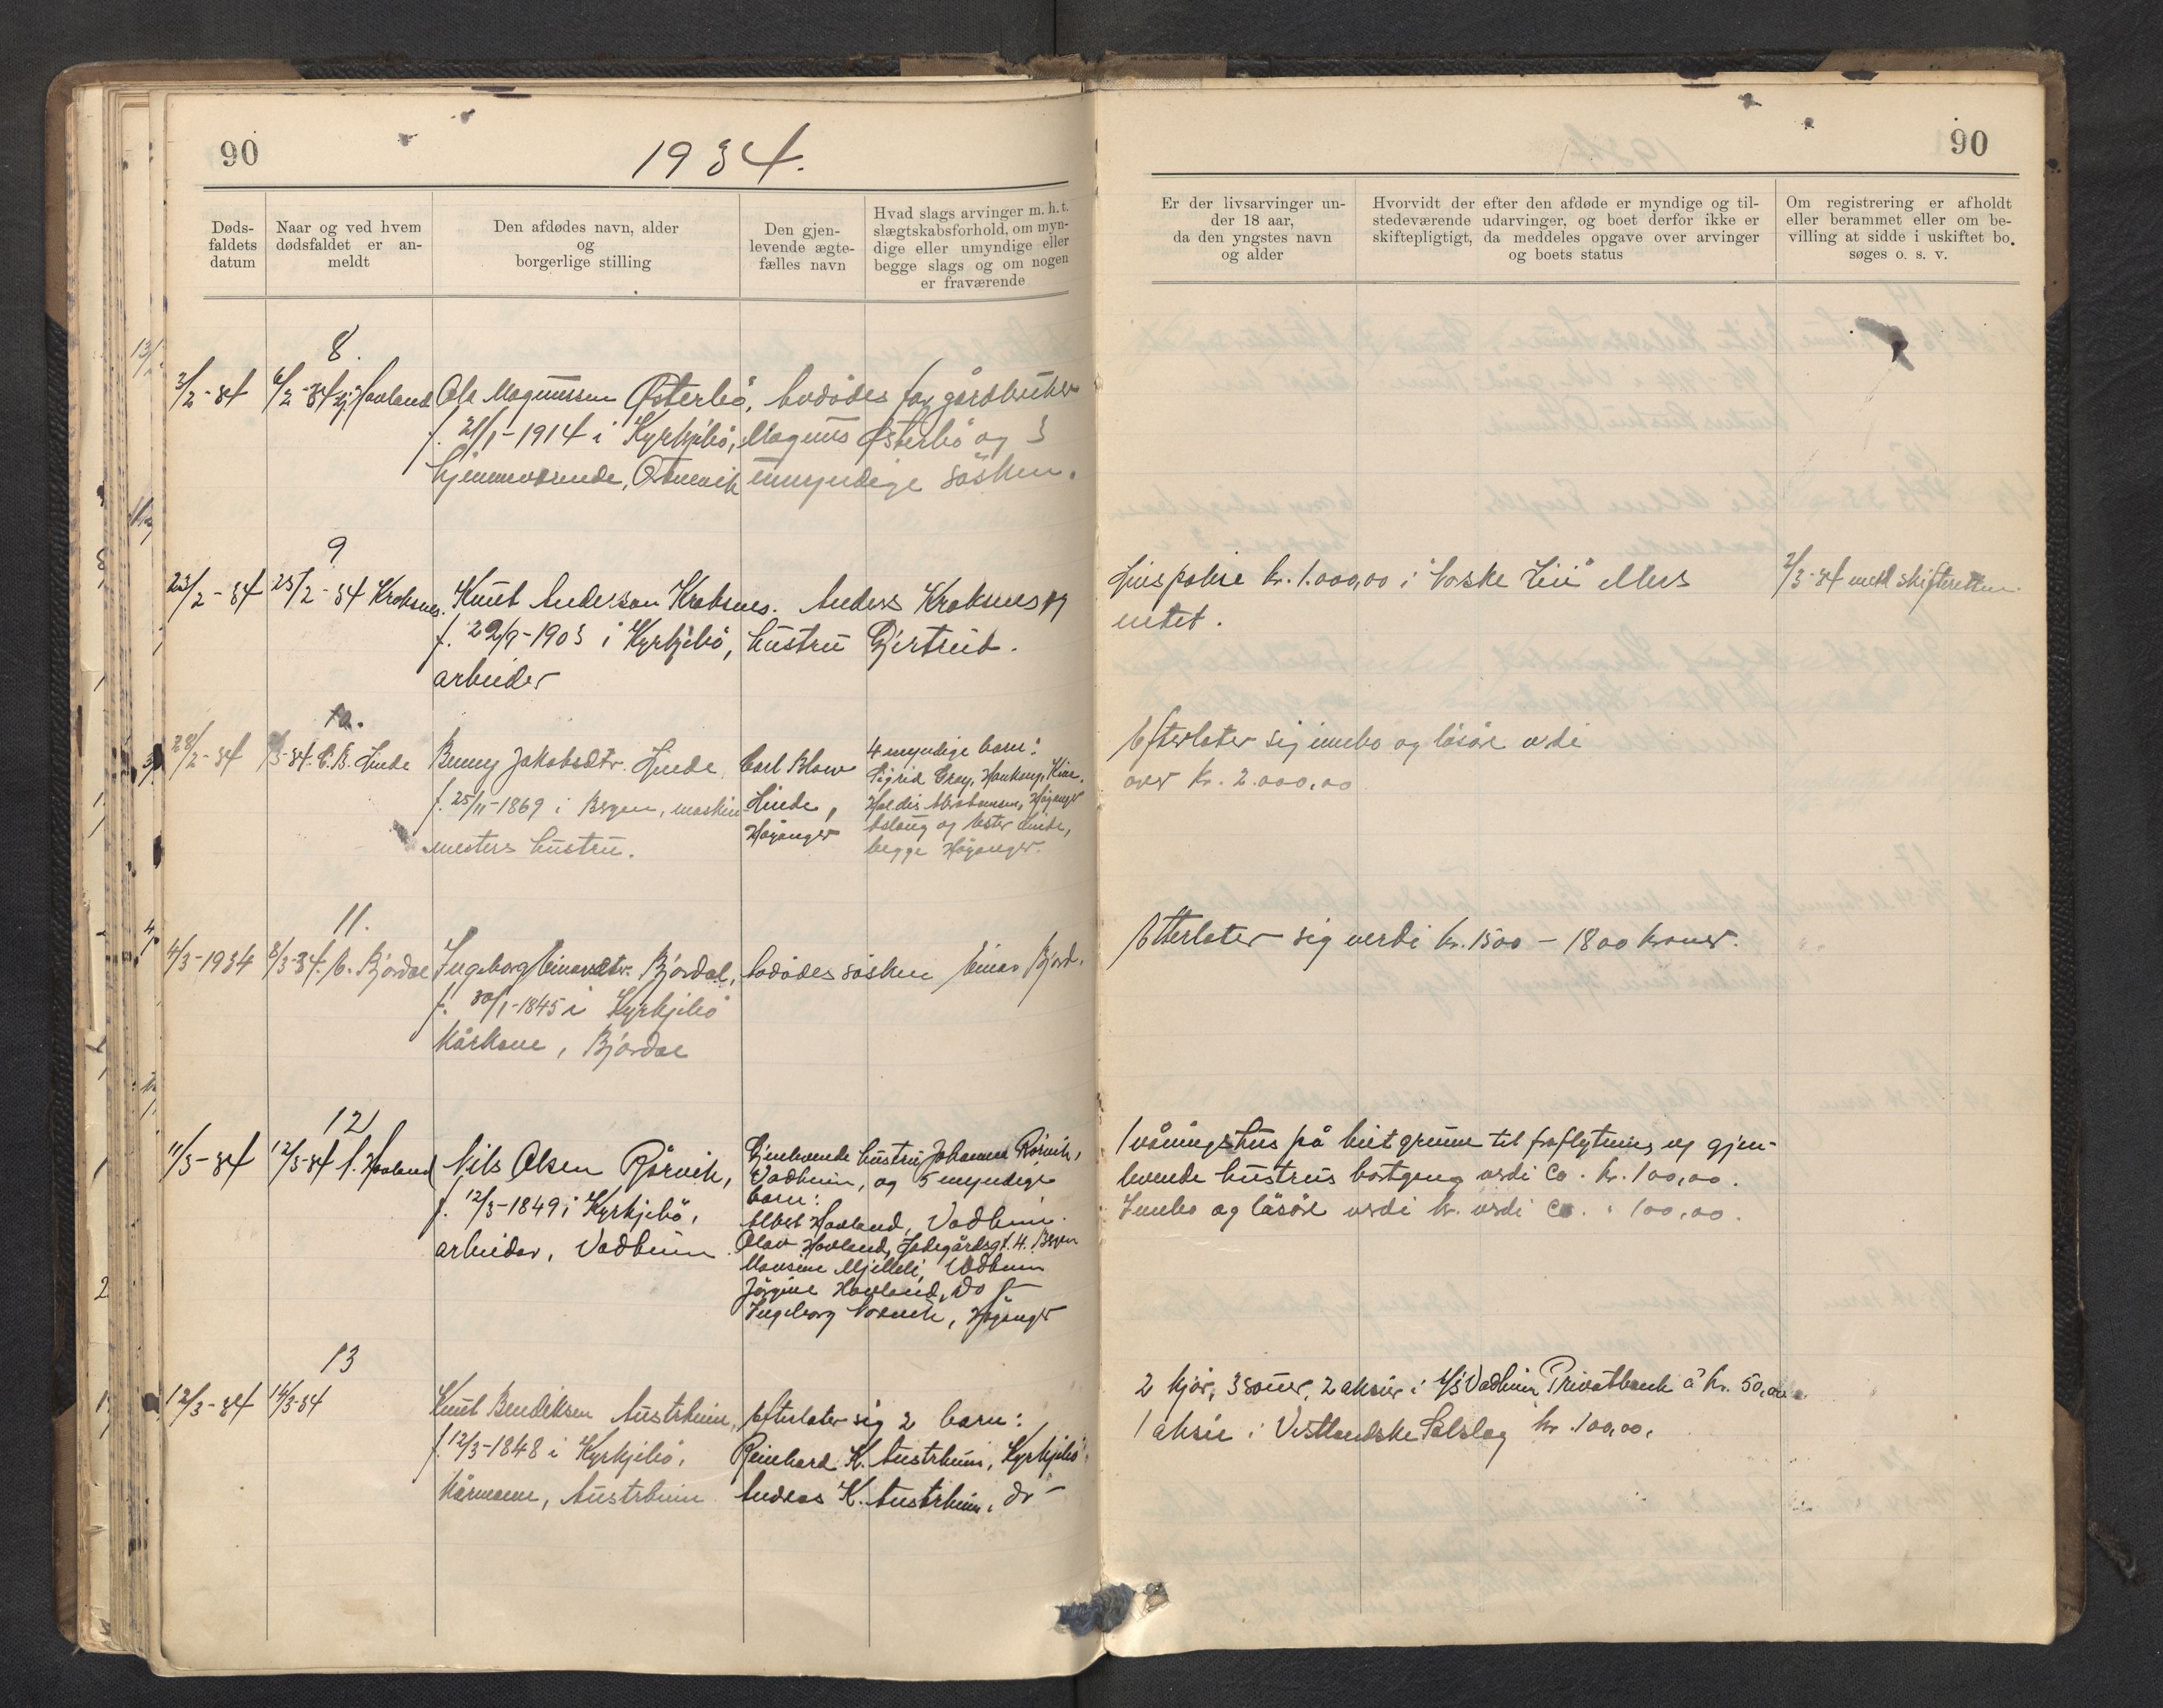 90
1934.
Døds-
faldets
datum
Naar og ved hvem
dødsfaldet er an-
meldt
Den afdødes navn, alder
og
borgerlige stilling
Den gjen-
levende ægte-
fælles navn
Hvad slags arvinger m. h. t.
slægtskabsforhold, om myn-
dige eller umyndige eller
begge slags og om nogen
er fraværende
8.
3/2-34 6/2-34 Havland Ole Magnussen Østerbö, Avdödes far gårdbruker
f. 21/1-1914 i Kyrkjebö, Magnus Østerbö og 3
hjemmeværende, umyndige sösken.
9
23/2-34 25/2-34 Kroksnes. Knut Anderson Kroksnes. Anders Kroksnes og
f. 22/9-1903 i Kyrkjebö, hustru Gjertrud.
arbeider
10.
28/2-34 /3-34. C. B. Linde Benny Jakobsdtr. Linde, Carl Blaw 4 myndige barn:
f. 25/11-1869 i Bergen, maskin- Linde, Sigrid Grey, Hankong, Kina.
mesters hustru. Höyanger Haldis Abrahamsen, Höyanger
Aslaug og Ester Linde,
begge Höyanger.
11.
4/3-1934 8/3-34. E. Bjordal Ingeborg Einarsdtr. Bjordal, Avdödes sösken Einar Bjord.
f. 30/1-1845 i Kyrkjebö
Kårkone, Bjordal
12
11/3-34 12/3-34 A. Havland Nils Olsen Rörvik, Gjenlevende hustru Johanne Rörvik,
Vadheim, og 5 myndige
barn:
f. 12/3-1849 i Kyrkjebö, Albert Havland, Vadheim.
arbeider, Vadheim. Olav Havland, Jadegårdsgt. 4. Bergen
Monsine Mjelleli, Vadheim
Jörgine Havland, do
Ingeborg, Höyanger
13
12/3-34 14/3-34 Knut Bendiksen Austrheim, Efterlater sig 2 barn:
f. 12/3-1848 i Kyrkjebö, Reinhard K. Austrheim, Kyrkjebö
Kårmann, Austrheim Andreas K. Austrheim, do
90
Er der livsarvinger un-
der 18 aar,
da den yngstes navn
og alder
Hvorvidt der efter den afdøde er myndige og til-
stedeværende udarvinger, og boet derfor ikke er
skiftepligtigt, da meddeles opgave over arvinger
og boets status
Om registrering er afholdt
eller berammet eller om be-
villing at sidde i uskiftet bo
søges o. s. v.
Livspolise kr. 1.000,00 i "Norske Liv" ellers 2/3-34 meld skifteretten.
intet.
Efterlater sig innbo og lösöre verdi
over kr. 2.000,00
Etterlater sig verdi kr. 1500 - 1800 kroner.
1 våningshus på leiet grunn til fraflytning ved gjen-
levende hustrus bortgang verdi ca. kr. 100,00.
Innbo og lösöre verdi kr. verdi ca. " 100,00.
2 kjör, 3 sauer, 2 aksier i A/S Vadheim Privatbank á kr. 50,00
1 aksie i Vestlandske Salslag kr. 100,00.